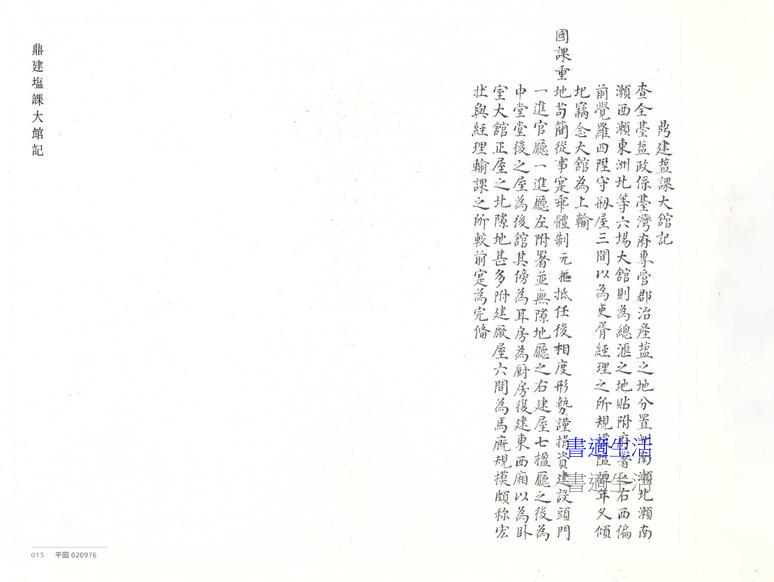 鼎建盐課大館記
查全臺盐政係臺灣府專管郡治產盐之地分置南瀨北瀨南
瀨西瀨東洲北等六場大館則為總滙之地貼附府署之右西偏
前覺羅四陞守剏屋三間以為吏胥經理之所規模隘年久傾
圮竊念大館為上輸
國課重地苟簡從事寔乖體制元樞抵任後相度形勢謹捐資建設頭門
一進官廳一進廳左附署並無隙地廳之右建屋七楹廳之後為
中堂堂後之屋為後館其傍為耳房為厨房復建東西廂以為卧
室大館正屋之北隙地甚多附建厰屋六間為馬廐規模頗称宏
壯與經理輸課之所較前寔為完俻
鼎建塩課大館記
015 平圖 020976
書適生活
書適生活